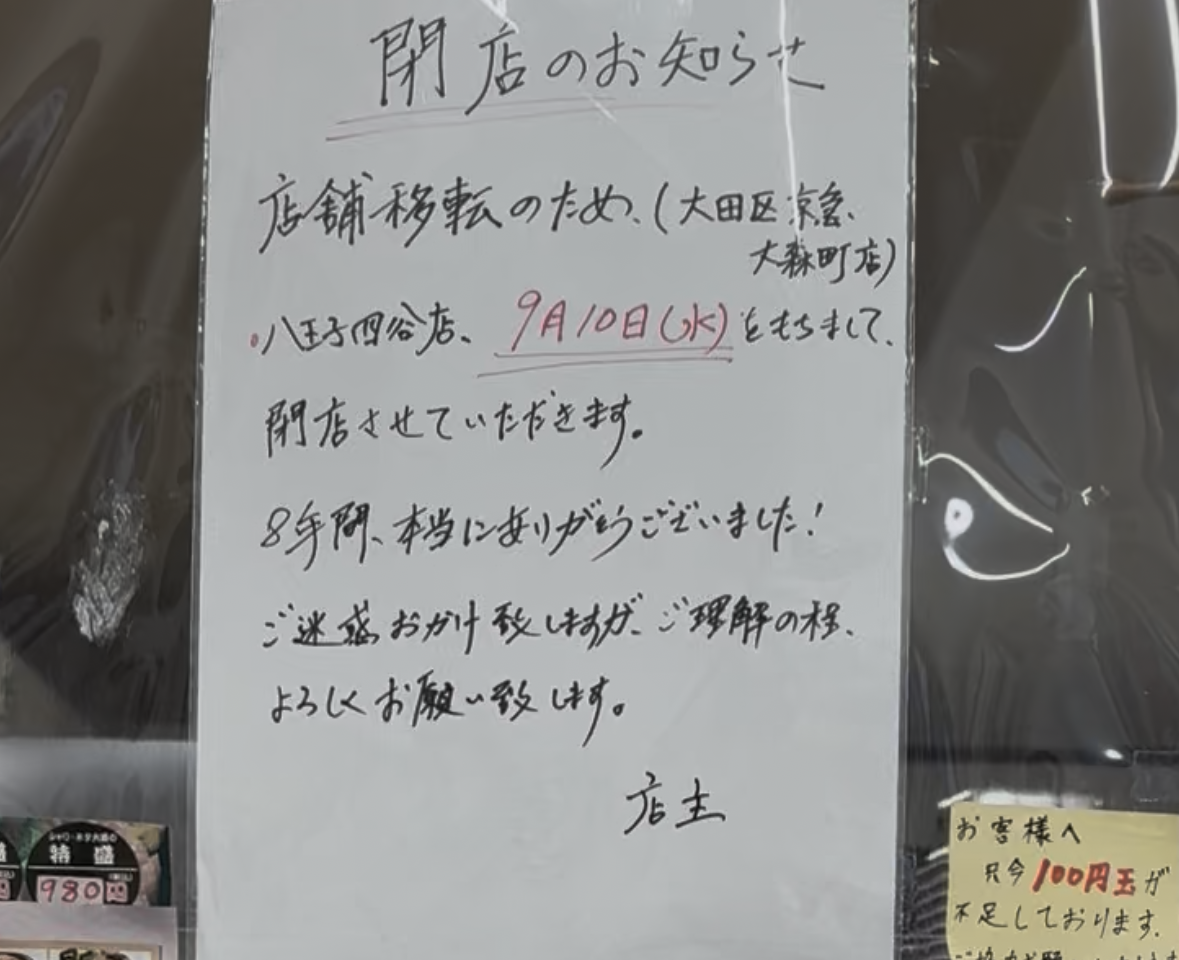 閉店のお知らせ
店舗移転のため、(大田区京急、
大森町店)
八王子四谷店、9月10日(水)をもちまして、
閉店させていただきます。
8年間、本当にありがとうございました!
ご迷惑おかけ致しますが、ご理解の程、
よろしくお願い致します。
店主
特盛
980円
お客様へ
只今100円玉が
不足しております。